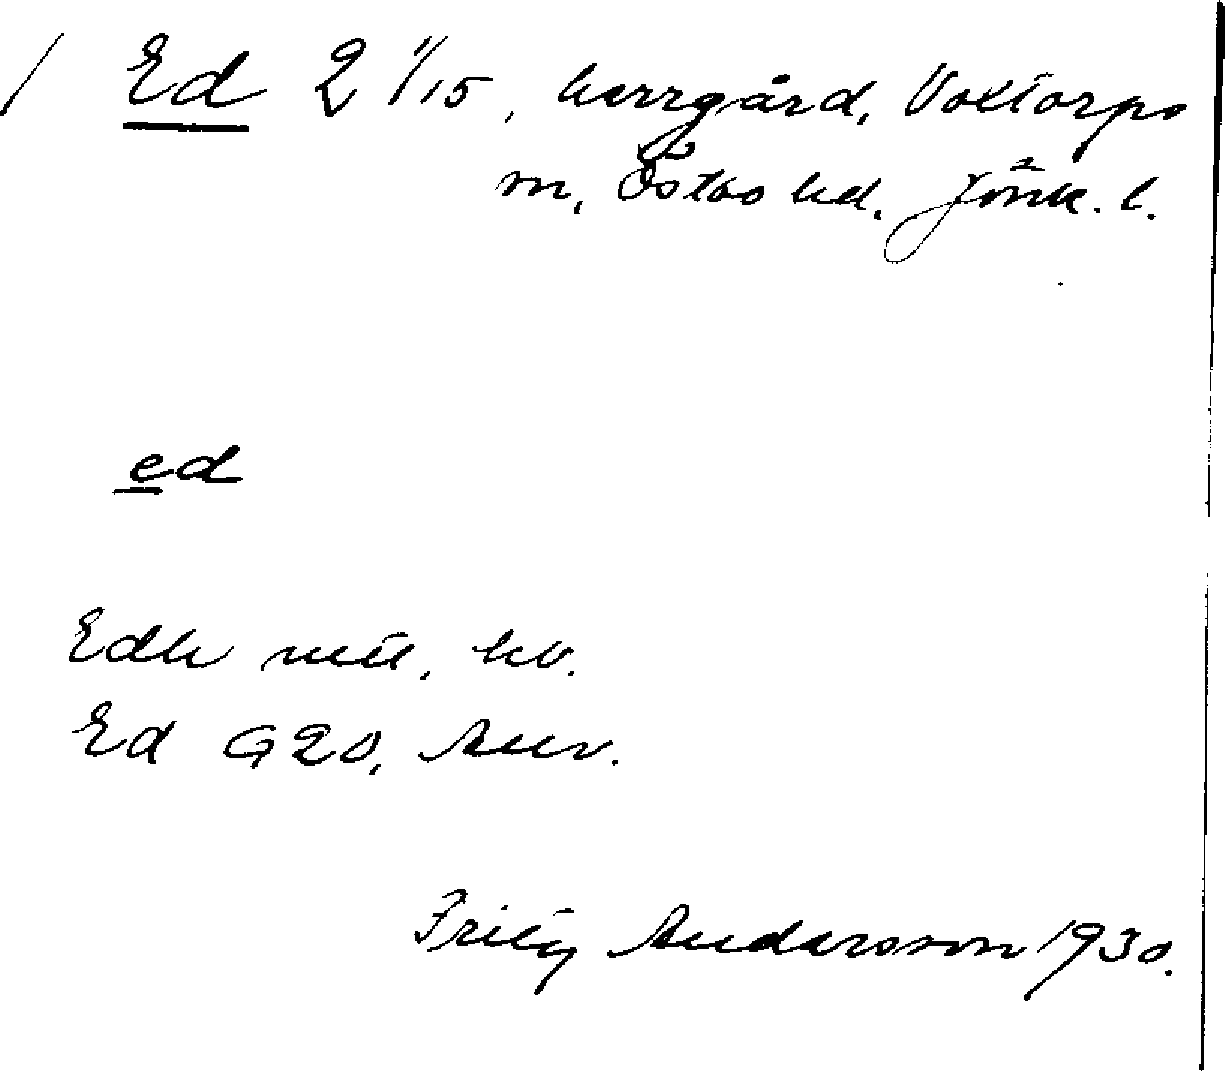 / Ed 2 1/15, herrgård, Voxtorps
sn, Östbo hd. Jönk. l.
ed
Edh mtl. kv.
Ed G20, Anv.
Fritz Andersson 1930.